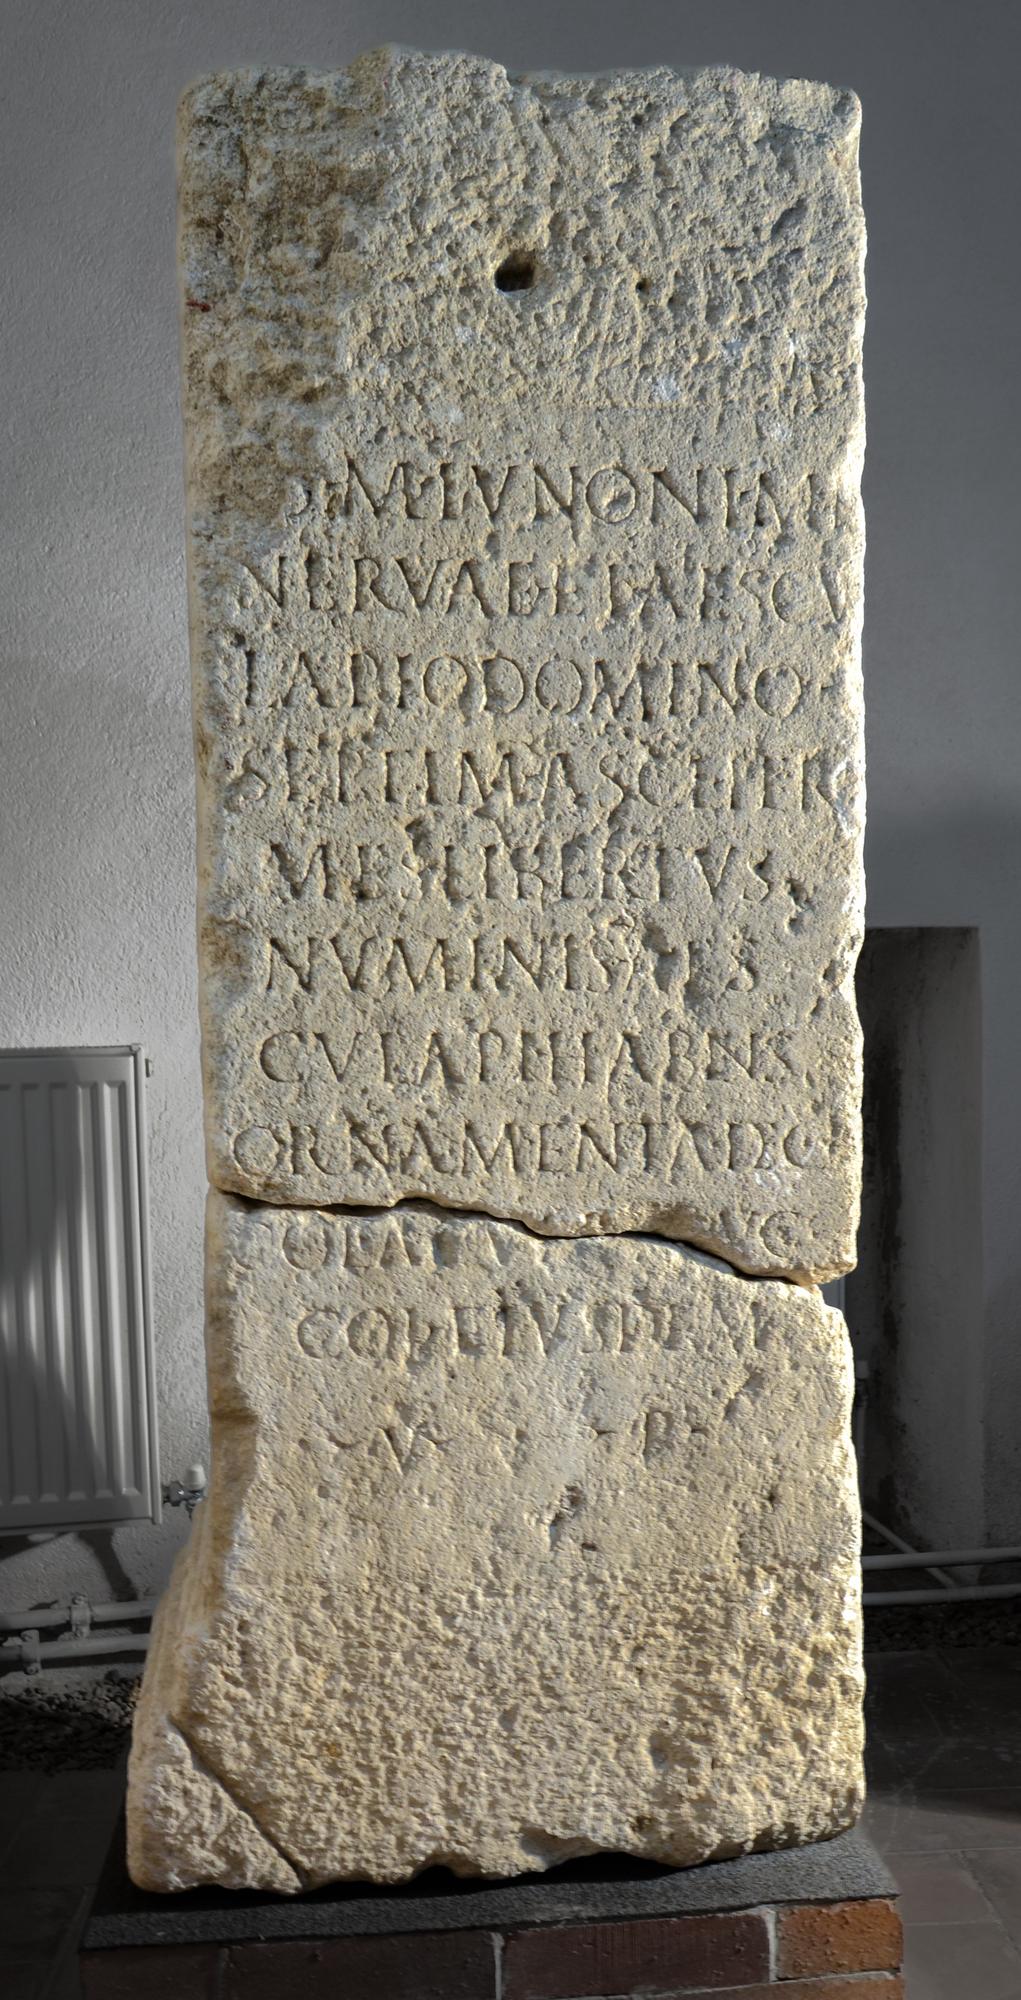 M IVNONI MI
NERVAE ET AESCV
LAPIO DOMINO
SEPTIM ASCL HER
MES LIBERTVS
NVMINIS AES
CVLAPI HABNS
ORNAMENTA DEC
COL EIVSDEM
V P